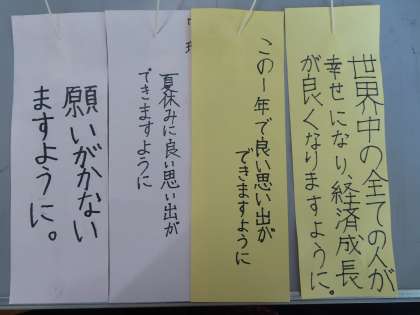 世界中の全ての人が
幸せになり、経済成長
が良くなりますように。
この1年で良い思い出が
できますように
夏休みに良い思い出が
できますように
願いがかない
ますように。